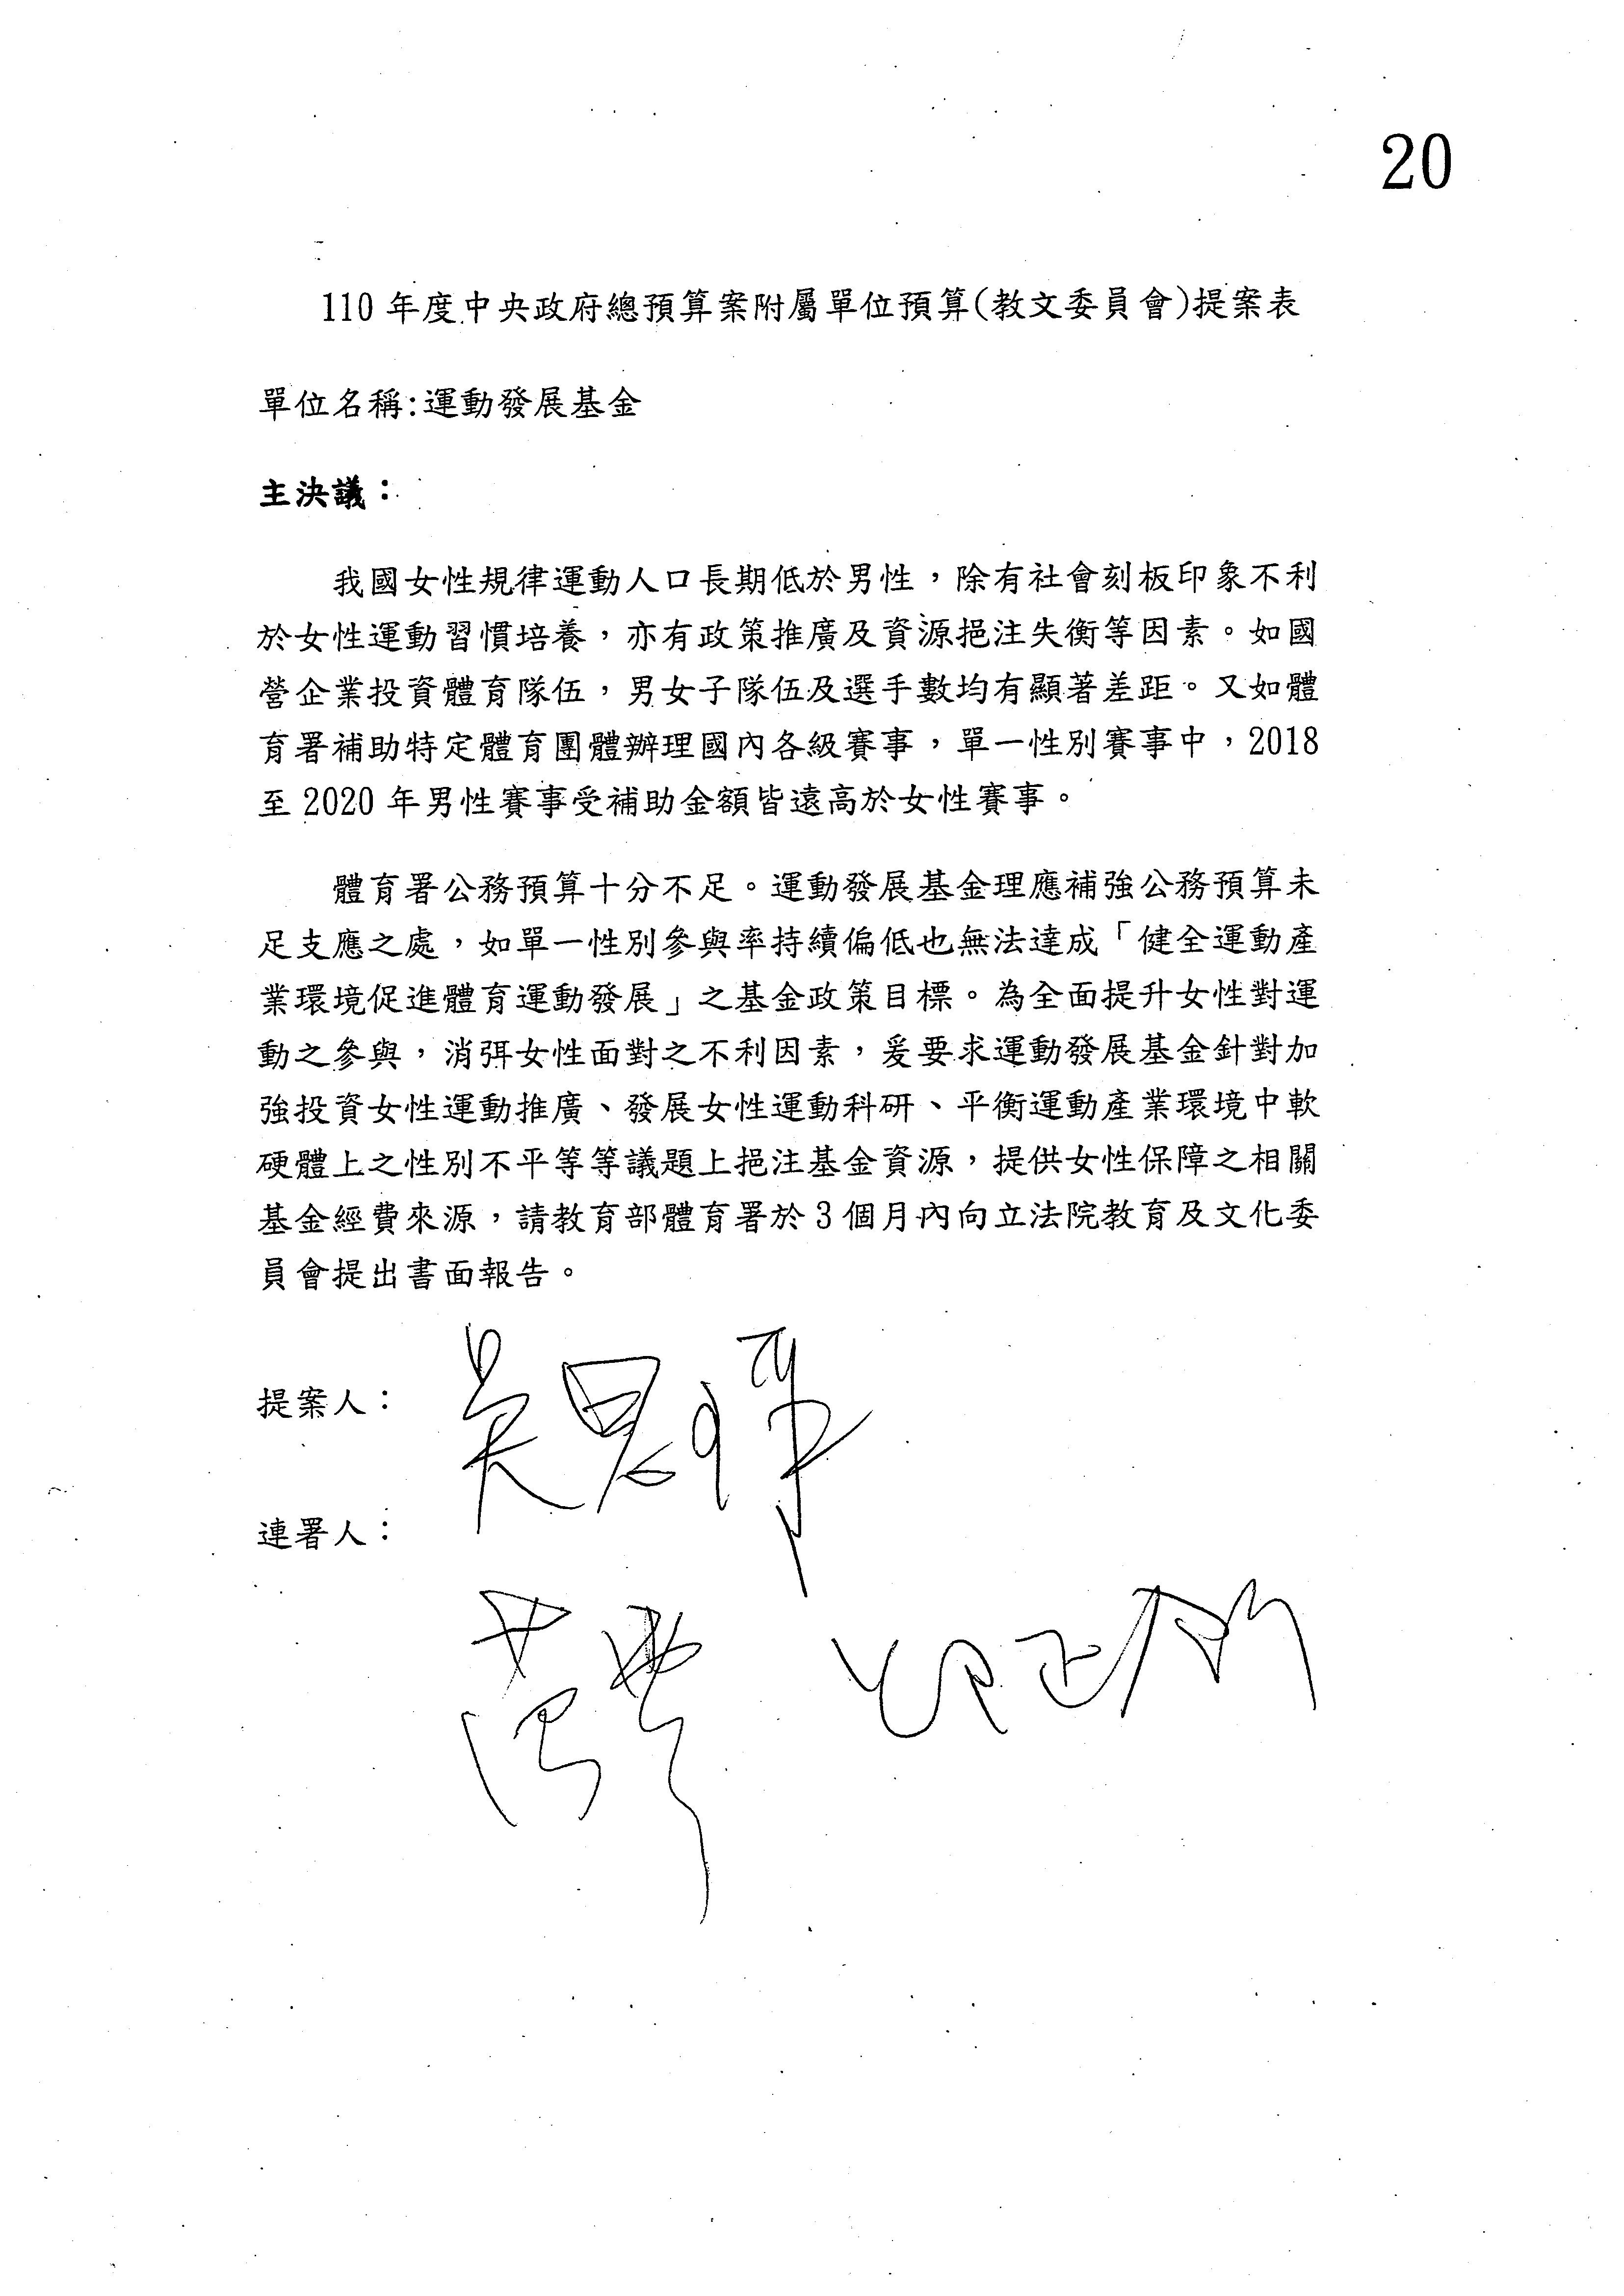 20
110年度中央政府總預算案附屬單位預算(教文委員會)提案表
單位名稱:運動發展基金
主決議：
我國女性規律運動人口長期低於男性，除有社會刻板印象不利
於女性運動習慣培養，亦有政策推廣及資源挹注失衡等因素。如國
營企業投資體育隊伍，男女子隊伍及選手數均有顯著差距。又如體
育署補助特定體育團體辦理國內各級賽事，單一性別賽事中，2018
至2020年男性賽事受補助金額皆遠高於女性賽事。
體育署公務預算十分不足。運動發展基金理應補強公務預算未
足支應之處，如單一性別參與率持續偏低也無法達成「健全運動產
業環境促進體育運動發展」之基金政策目標。為全面提升女性對運
動之參與，消弭女性面對之不利因素，爰要求運動發展基金針對加
強投資女性運動推廣、發展女性運動科研、平衡運動產業環境中軟
硬體上之性別不平等等議題上挹注基金資源，提供女性保障之相關
基金經費來源，請教育部體育署於3個月內向立法院教育及文化委
員會提出書面報告。
提案人：
連署人：